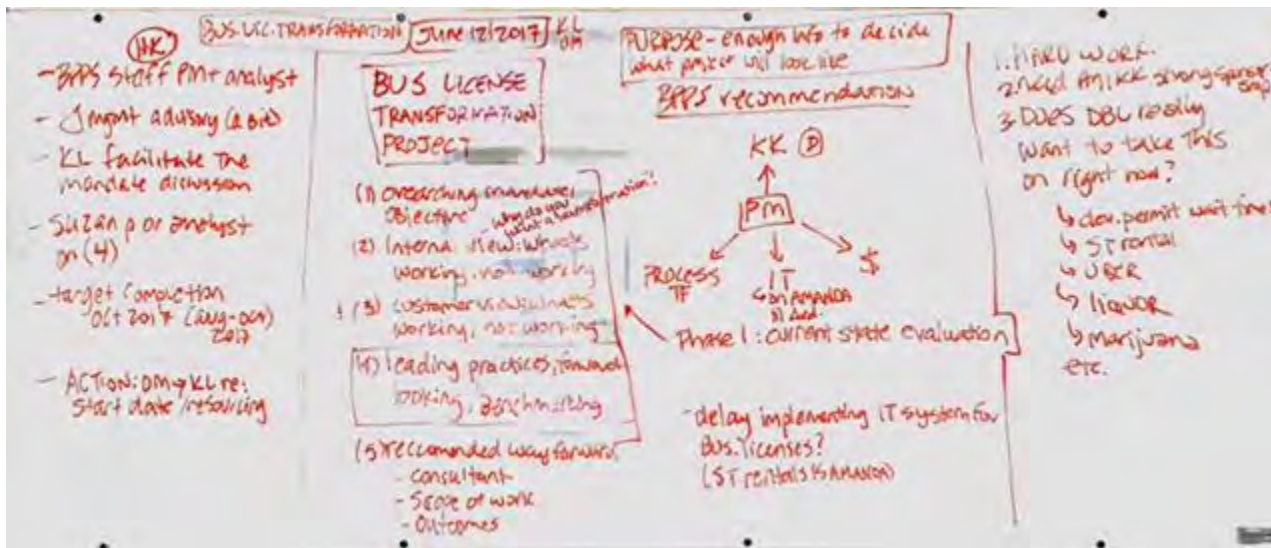 BUS. LIC. TRANSFORMATION
JUNE 12/2017
KL
DM
HK
- BPPS staff PM + analyst
- mgmt advisory (a bit)
- KL facilitate the
mandate discussion
- Suzan p or analyst
on (4)
- target completion
Oct 2017 (aug-oct)
2017
- ACTION: DM → KL re:
start date / resourcing
BUS LICENSE
TRANSFORMATION
PROJECT
(1) overarching mandate,
objective
- why do you
want a transformation?
(2) Internal view: what's
working, not working
(3) customer view: what's
working, not working
(4) leading practices, forward
looking, benchmarking
(5) reccomended way forward
- consultant
- Scope of work
- Outcomes
PURPOSE - enough info to decide
what project will look like
BPPS recommendation
KK
PM
PROCESS
TF
IT
AMANDA
$
Phase 1: current state evaluation
- delay implementing IT system for
BUS. licenses?
(ST rentals AMANDA)
1. HARD WORK.
2. need KK strong
3. DOES DBL really
want to take this
on right now?
↳ dev. permit wait time!
↳ ST rental
↳ UBER
↳ liquor
↳ marijuana
etc.